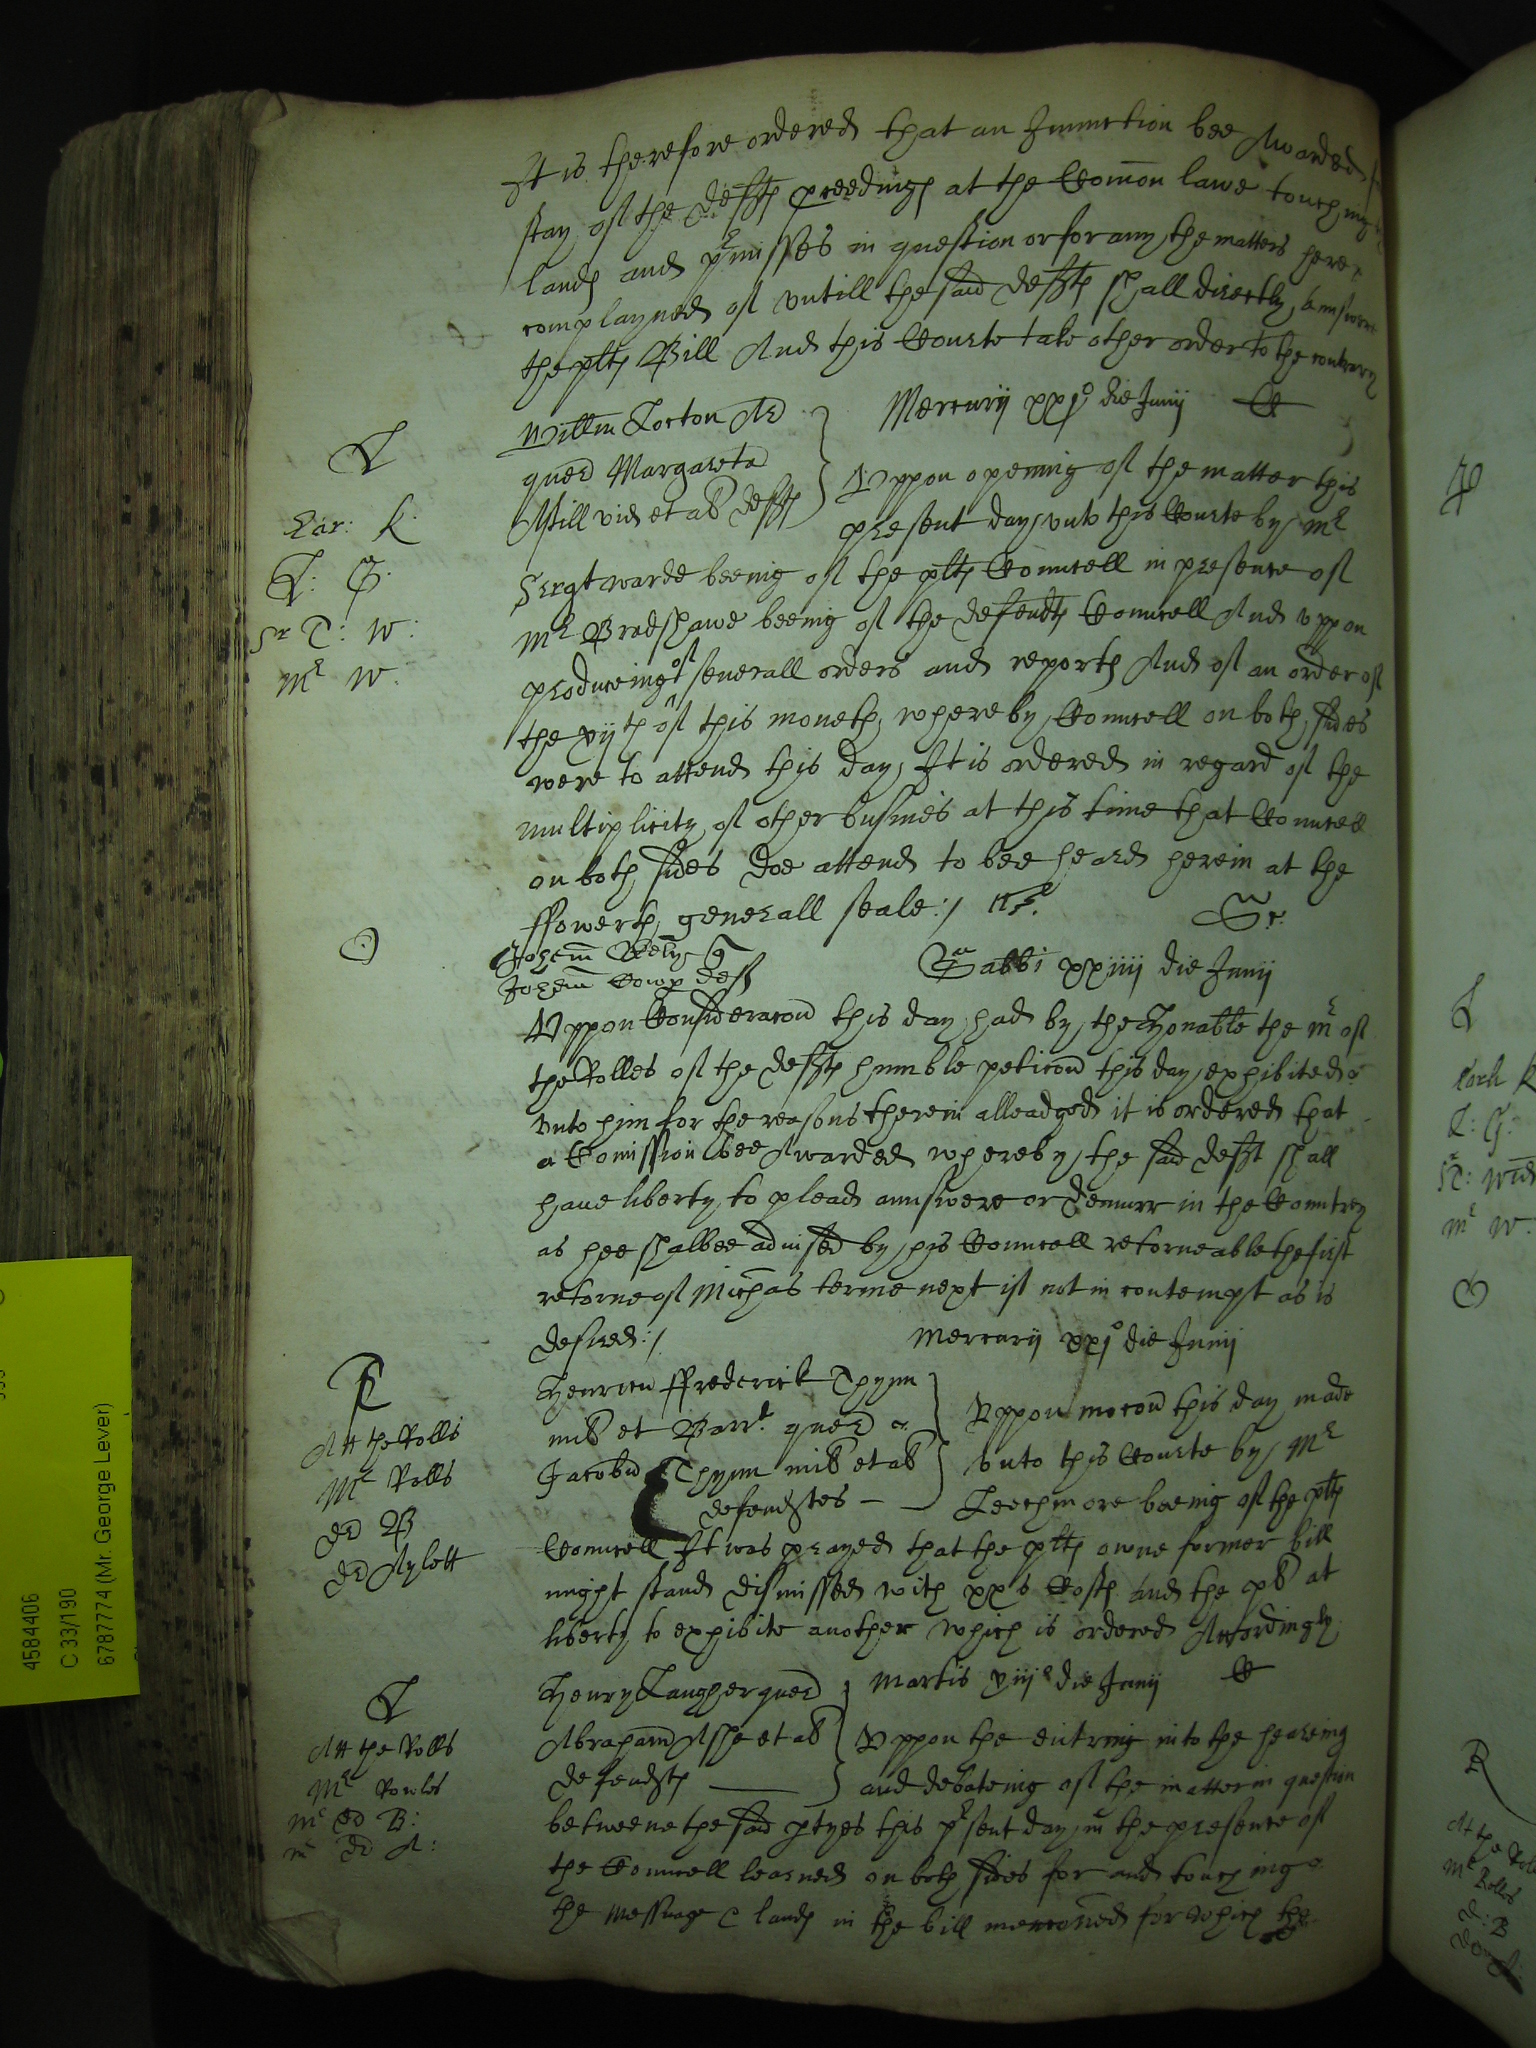 It is therefore ordered that an Iniunction bee Awarded for
stay of the defts pceedings at the Comon lawe touching the
lands and pmisses in question or for any the matters here
complayned of vntill the said defts shall directly answere
the plts Bill And this Courte take other order to the contrary
Mercurij xxjo die Junij
L
Willm Locton Ar
quer Margareta
Still vid et al defts
Vppon opening of the matter this
present day vnto this Courte by Mr
Lar: K:
L: G:
Sr T: W:
Mr W:
Sergt warde beeing of the plts Councell in presence of
Mr Bradshawe beeing of the defendts Councell And vppon
produceing of seuerall orders and reports And of an order of
the xijth of this moneth whereby Councell on both sides
were to attend this day It is ordered in regard of the
multiplicity of other busines at this time that Councell
on both sides doe attend to bee heard herein at the
ffowerth generall seale:/
Johem
Johem Cowp def
Sabbi xxiiij die Junij
Vppon Consideracon this day had by the Honable the Mr of
the Rolles of the defts humble peticon this day exhibited
vnto him for the reasons therein alleadged it is ordered that
a Comission bee Awarded whereby the said deft shall
haue liberty to plead answere or demurr in the Countrey
as hee shalbee aduised by his Councell retorneable the first
retorne of Michas terme next if not in contempt as is
desired:/
Mercurij xxjo die Junij
Att the Rolls
Mr Rolls
dr B
dr Aylett
Henricu ffrederick Thynn
mil et Barrt. quer
Jacobu Thynn mil et al
defendtes
Vppon mocon this day made
vnto this Courte by Mr
Leechmore beeing of the plts
Councell It was prayed that the plts owne former bill
might stand dismissed with xxs Costs And the pl at
liberty to exhibite another which is ordered Accordingly
L
Att the Rolls
Mr Rowles
mr dr B:
mr dr A:
Henry Laugher quer
Abraham Ashe et al
defendts
Martis xiijo die Junij
Vppon the entring into the heareing
and debateing of the matter in question
betweene the said ptyes this psent day in the presence of
the Councell learned on both sides for and touching
the Messuage & lands in the bill menconed for which the
4584406
C 33/190
6787774 (Mr. George Lever)
L: G:
mr W:
R
At the Rolls
Mr Rolls
d: B